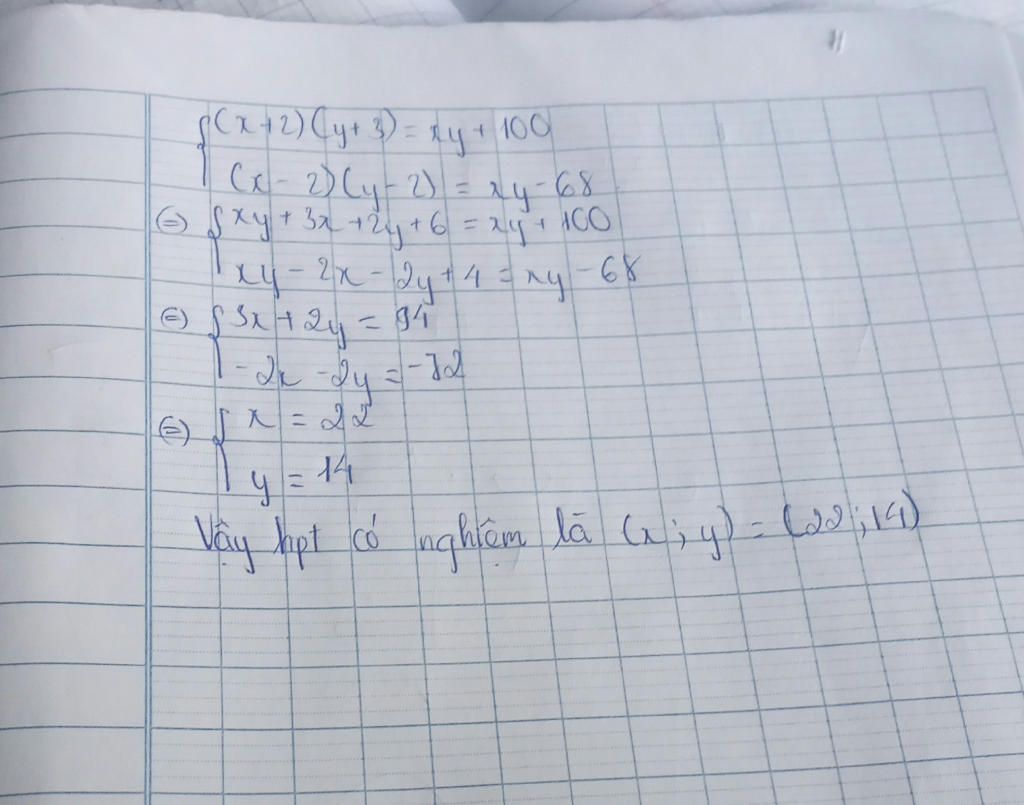 {(x+2)(y+3) = xy + 100
(x - 2)(y - 2) = xy - 68
(=) {xy + 3x + 2y + 6 = xy + 100
xy - 2x - 2y + 4 = xy - 68
(=) {3x + 2y = 94
-2x - 2y = -72
(=) {x = 22
y = 14
Vậy hpt có nghiệm là (x ; y) = (22 ; 14)